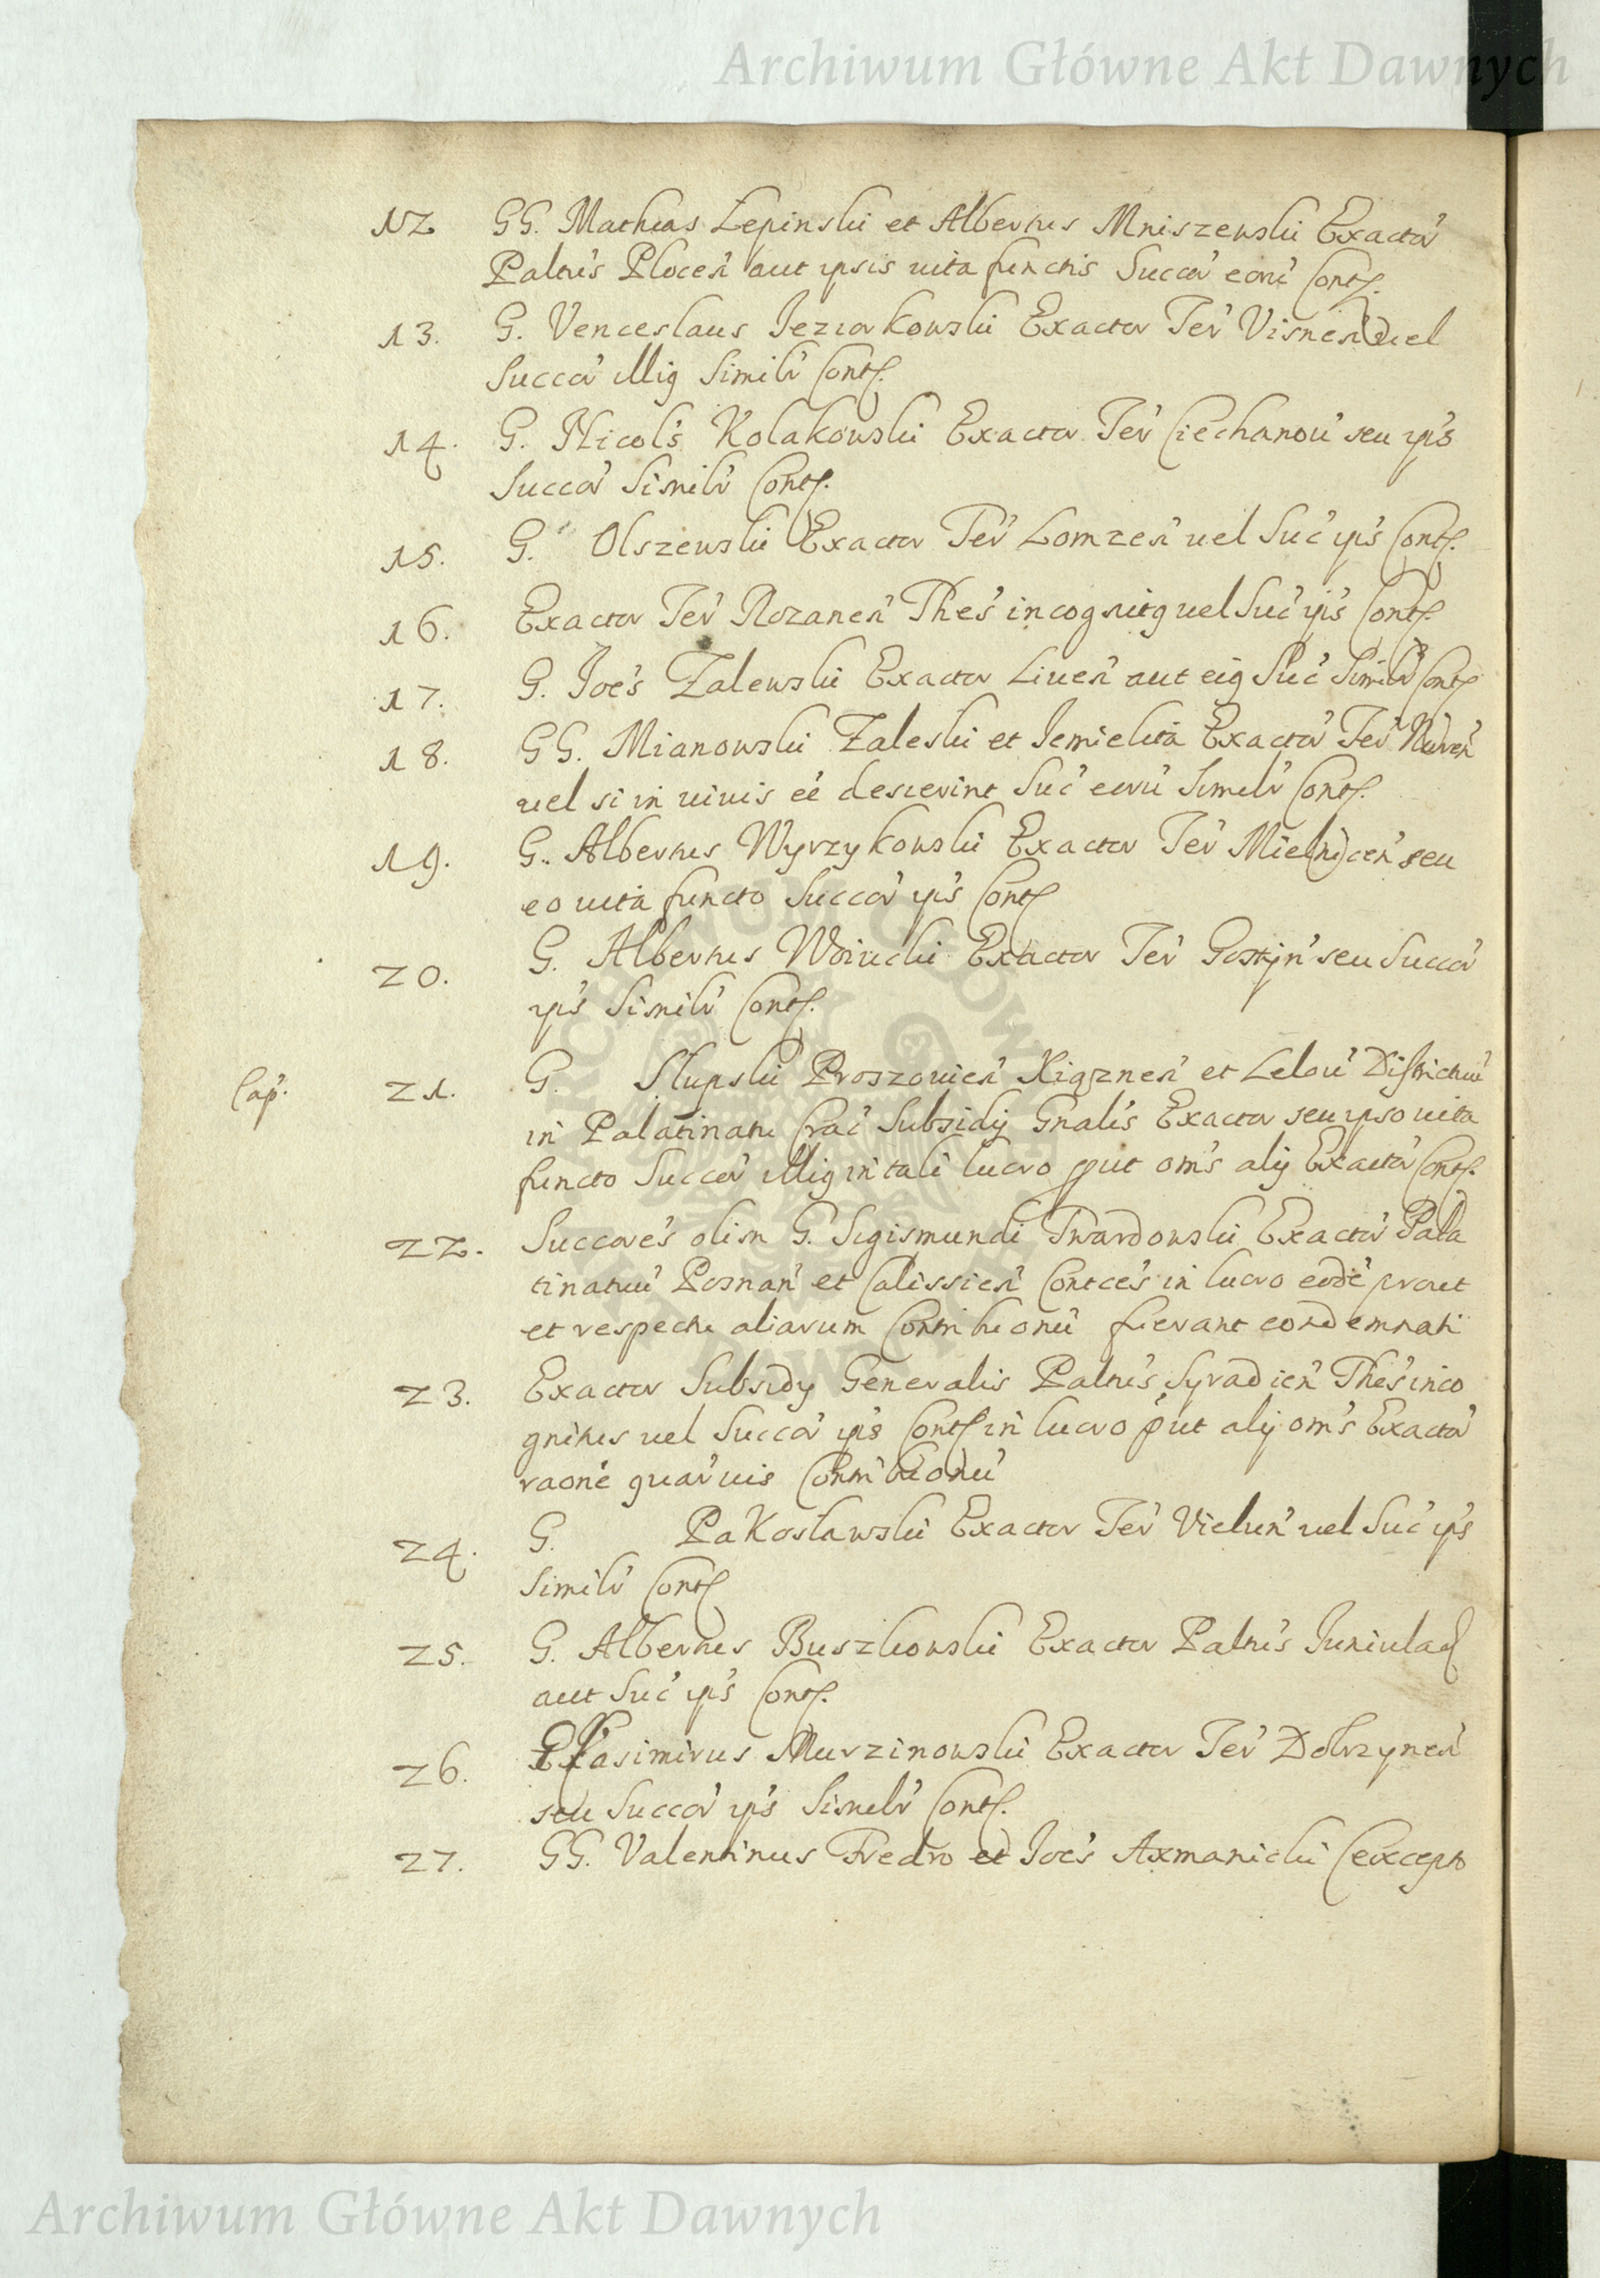 Archiwum Główne Akt Dawnych
12 GG. Mathias Zepinski et Albertus Mniszewski Exactor'
Paltus' Plocen' aut ipsis uita functis Succor' eoru' Contſ.
13. G. Venceslaus Jeziorkowski Exactor Ter' Visnen' uel
Succor' illig Simili' Contſ.
14. G. Nicol's Kolakowski Exactor Ter' Ciechanou' seu ip's
Succor' Simili' Contſ.
15. G. Olszewski Exactor Ter' Lomzen' uel Suc' ip's Contſ.
16. Exactor Ter' Rozanen' Thes' incognitg uel Suc' ip's Contſ.
17. G. Joe's Zalewski Exactor Liuen' aut eig Suc' Simili' Contſ
18. GG. Mianowski Zaleski et Jemielita Exactor' Ter' Nuren'
uel si in uiuis ee' desierint Suc' eoru' Simili' Contſ.
19. G. Albertus Wyrzykowski Exactor Ter' Mielnicen' seu
eo uita functo Succor' ip's Contſ
20. G. Albertus Woiucki Exactor Ter' Gostjn' seu Succor'
ip's Simili' Contſ.
Cap'.
21. G. Slupski Proszouien' Xigznen' et Lelou' Districtuu'
in Palatinatu Crac' Subsidij Gnalis Exactor seu ipso uita
functo Succor' illig in tali lucro put om's alij Exactor' Contſ.
22. Succores' olim G. Sigismundi Twardowski Exactor' Pala
tinatuu' Posnan' et Calissien' Contces' in lucro eode' prout
et respectu aliarum Contribuonu' fuerant condemnati
23. Exactor Subsidy Generalis Paltus' Syradien' Thes' inco
gnitus uel Succor' ip's Contſ in lucro put alij om's Exactor'
raone' quar'uis Contribuonu'
24. G. Pakoslawski Exactor Ter' Vielun' uel Suc' ip's
Simili' Contſ
25. G. Albertus Buszkowski Exactor Paltus' Juniulad
aut Suc' ip's Contſ.
26. Casimirus Murzinowski Exactor Ter' Dobrzynen'
seu Succor' ip's Simili' Contſ.
27. GG. Valentinus Fredro et Joe's Axmanicki (excepto
Archiwum Główne Akt Dawnych